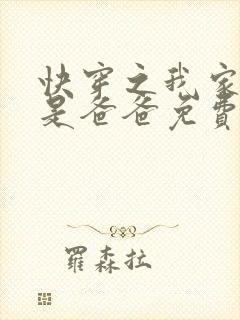 快穿之我家
是爸爸免費
羅森拉